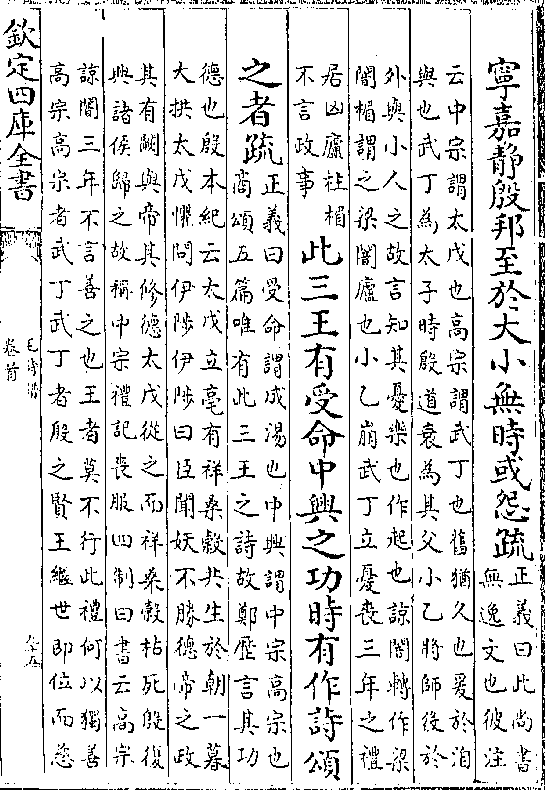 寧嘉静殷邦至於大小無時或怨疏
正義曰此尚書
無逸文也彼注
云中宗謂太戊也高宗謂武丁也舊猶久也爰於洎
與也武丁為太子時殷道衰為其父小乙將師役於
外與小人之故言知其憂樂也作起也諒闇轉作梁
闇楣謂之梁闇廬也小乙崩武丁立憂喪三年之禮
居凶廬柱楣
不言政事
此三王有受命中興之功時有作詩頌
之者疏
正義曰受命謂成湯也中興謂中宗高宗也
商頌五篇唯有此三王之詩故鄭歷言其功
德也殷本紀云太戊立亳有祥桑榖共生於朝一暮
大拱太戊懼問伊陟伊陟曰臣聞妖不勝德帝之政
其有闕與帝其修德太戊從之而祥桑榖枯死殷復
興諸侯歸之故稱中宗禮記喪服四制曰書云高宗
諒闇三年不言善之也王者莫不行此禮何以獨善
高宗高宗者武丁武丁者殷之賢王繼世即位而慈
欽定四庫全書
毛詩譜
卷首